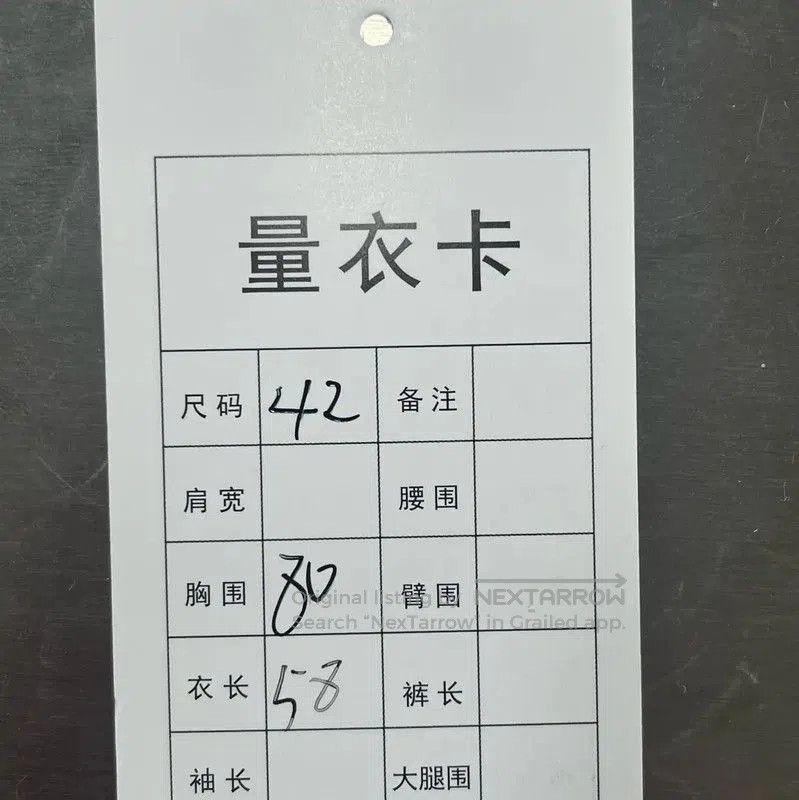 量衣卡
尺码 42 备注
肩宽 腰围
胸围 80 臂围
Original listing by NEXTARROW
Search "NexTarrow" in Grailed app.
衣长 58 裤长
袖长 大腿围